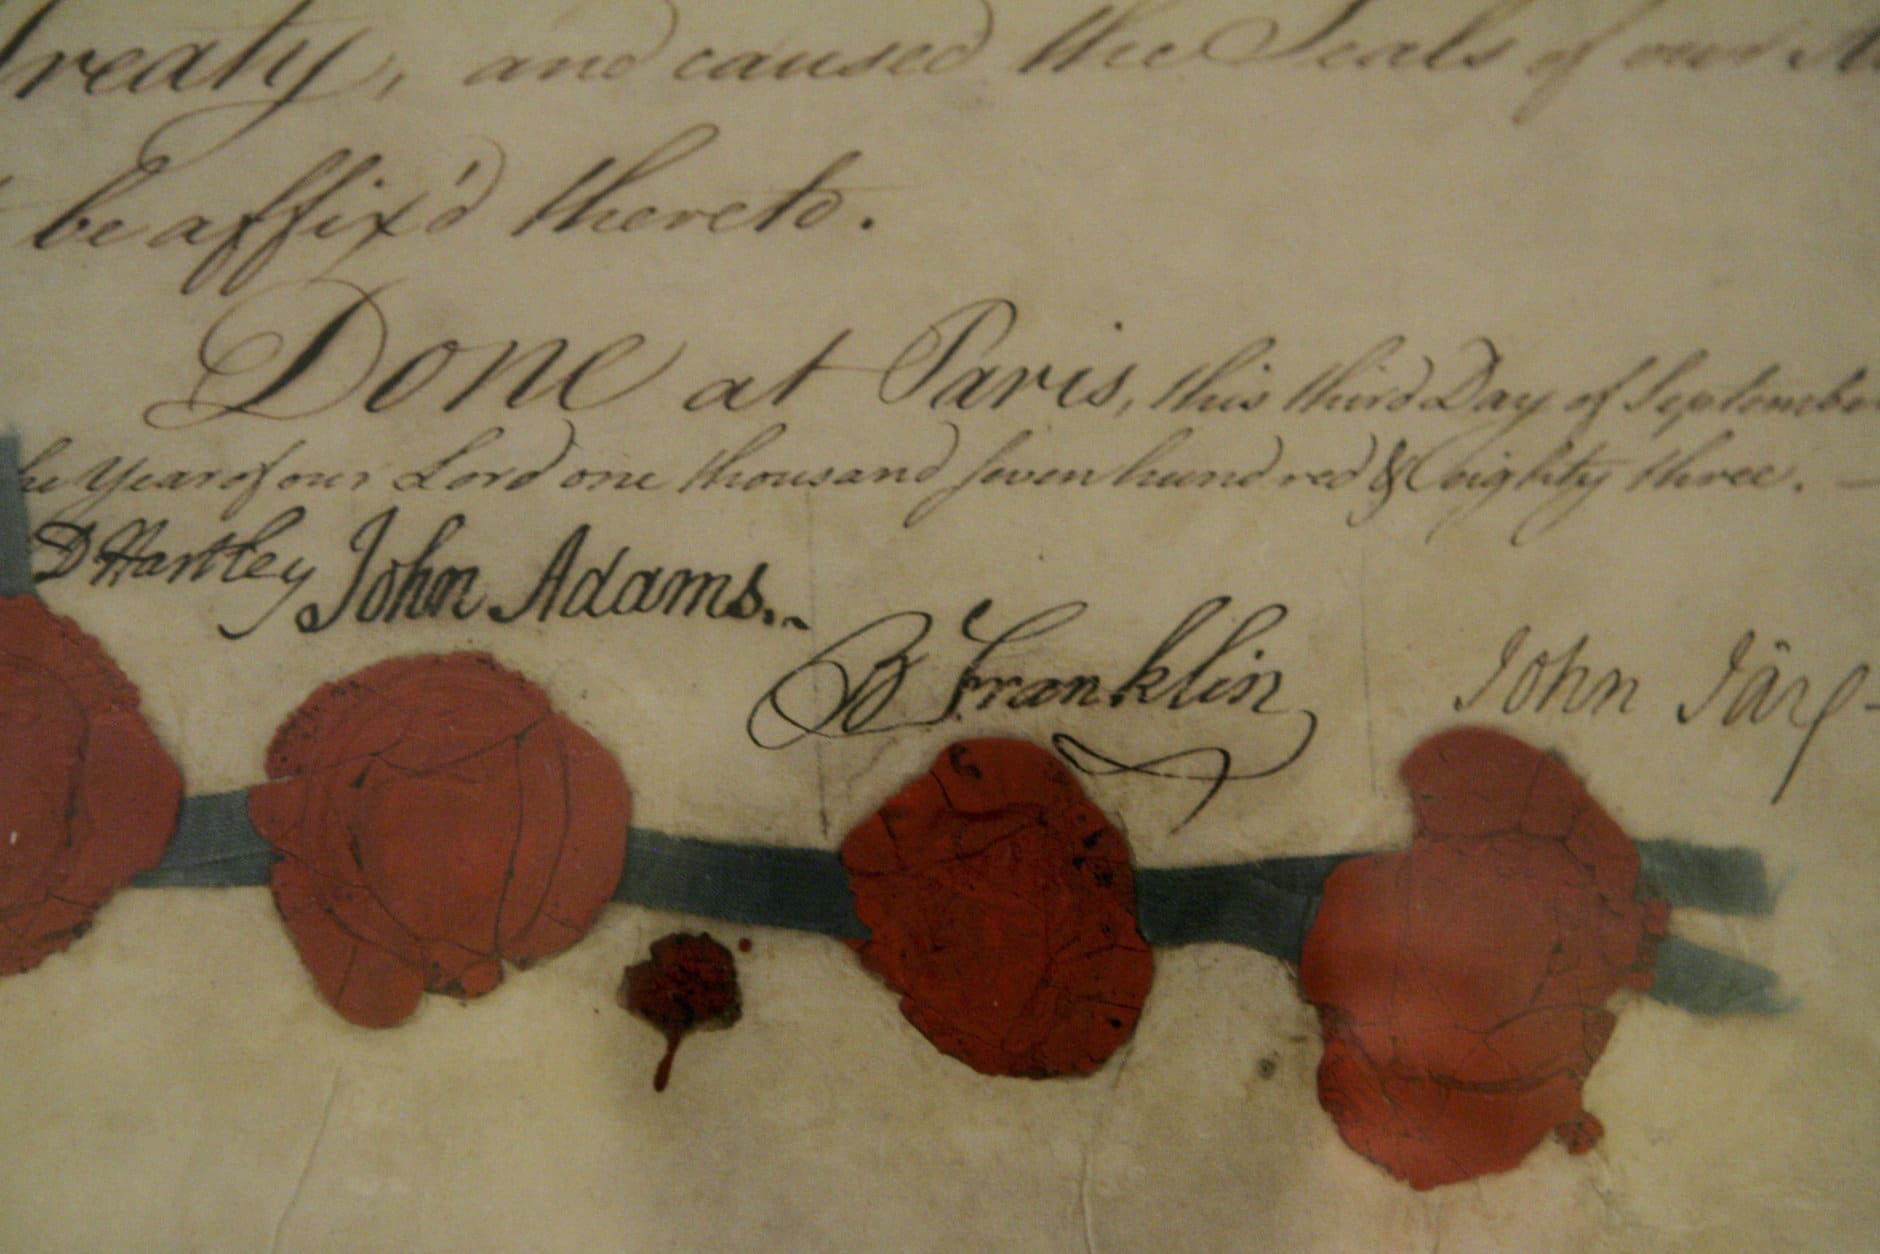 Treaty, and caused the Seals of our
be affix'd thereto.
Done at Paris, this third Day of September
he Year of our Lord one thousand seven hundred & Eighty three. —
D Hartley John Adams.
B Franklin John Jay -